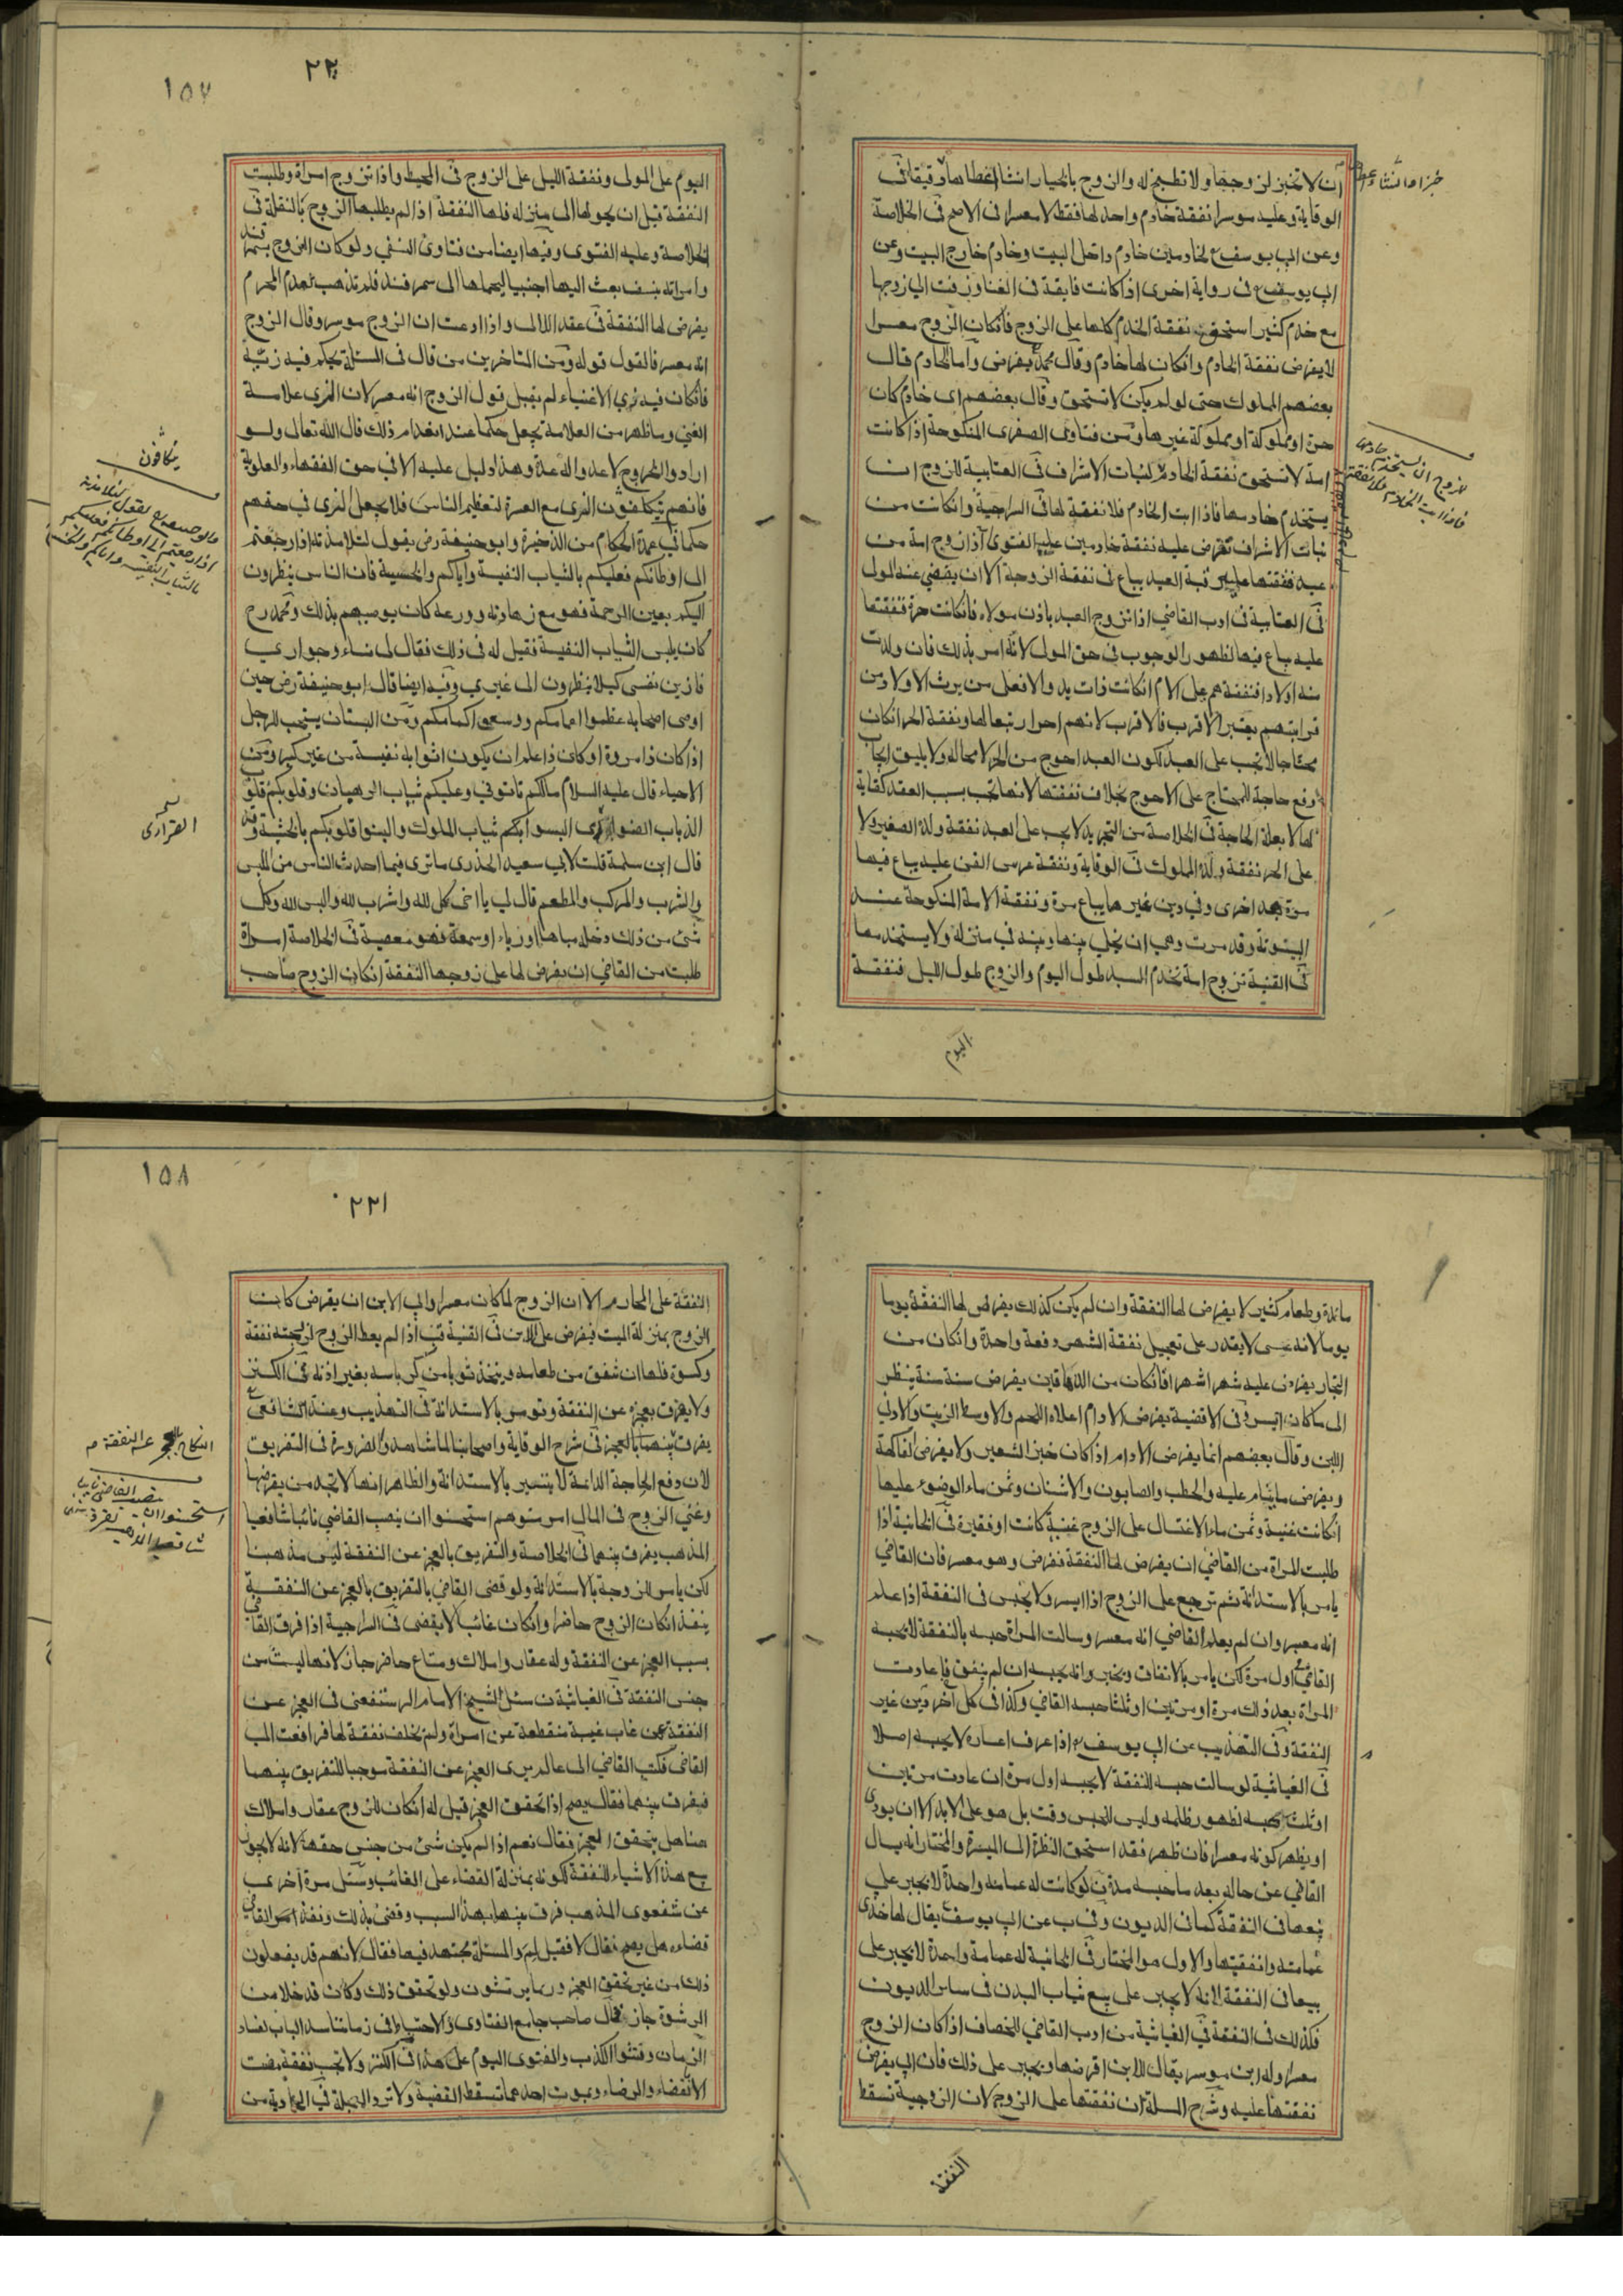 ان لا تخبز لزوجها ولا تطبخ له والزوج بالخيار انشا اعطاها دقيقا في
الوقاية وعليه موسرا نفقة خادم واحد لها فقط لا معسرا في الاصح في الخلاصة
وعن ابي يوسف لخادمين خادم داخل البيت وخادم خارج البيت وعن
ابي يوسف في رواية اخرى اذا كانت فايقة في الغنا وزفت الي زوجها
مع خدم كثير استحقت نفقة الخدم كلها على الزوج فانكان الزوج معسرا
لا يفرض نفقة الخادم وانكان لها خادم وقال محمد يفرض واما الخادم قال
بعضهم المملوك حتى لو لم يكن لا تستحق وقال بعضهم اي خادم كان
حرة او مملوكة او مملوكة غيرها ومن فتاوى الصغرى المنكوحة اذا كانت
امة لا تستحق نفقة الخادم لبنات الاشراف في العتابية للزوج ان
يستخدم خادمها فاذا ابت الخادم فلا نفقة لها في السراجية وانكانت من
بنات الاشراف تفرض عليه نفقة خادمين عليه الفتوى اذا زوج امة من
عبده فنفقتها عليه قنية العبد يباع في نفقة الزوجة الا ان يقضي عنه المولى
في العتابية في ادب القاضي اذا تزوج العبد باذن مولاه فانكانت حرة فنفقتها
عليه يباع فيها لظهور الوجوب في حق المولى لانه امر بذلك فان ولدت
منه اولادا فنفقة هم على الام انكانت ذات يد والا فعلى من يرث الاولاد من
قرابتهم يعتبر الاقرب فالاقرب لانهم احرار تبعا لها ونفقة الحر انكان
محتاجا لا تجب على العبد لكون العبد احوج من الحر لا محالة ولا يليق ايجاب
رفع حاجة المحتاج على الاحوج بخلاف نفقتها لانها تجب بسبب العقد كفاية
لها لا بعلة الحاجة في الخلاصة من التجريد لا يجب على العبد نفقة ولده الصغير ولا
على الحر نفقة ولده المملوك في الوقاية ونفقة عرس القن عليه يباع فيها
مرة بعد اخرى وفي دين غيرها يباع مرة ونفقة الامة المنكوحة عند
البيتوتة وقد مرت وهي ان يخلي بينها وبينه في منزله ولا يستخدمها
في القنية تزوج امة تخدم السيد طول اليوم والزوج طول الليل فنفقة
اليوم
١٥٧
٢٢٠
اليوم على المولى ونفقة الليل على الزوج في المحيط واذا تزوج امراة وطلبت
النفقة قبل ان يحولها الى منزله فلها النفقة اذا لم يطلبها الزوج بالنقلة في
الخلاصة وعليه الفتوى وفيها ايضا من فتاوى النسفي ولو كان الزوج بسمرقند
وامراته بنسف بعث اليها اجنبيا ليحملها الى سمرقند فلم تذهب لعدم المحرم
يفرض لها النفقة في عقد اللالى واذا ادعت ان الزوج موسر وقال الزوج
انه معسر فالقول قوله ومن المتاخرين من قال في المسئلة يحكم فيه زيّه
فانكان فيه زي الاغنياء لم يقبل قول الزوج انه معسر لان الزي علامة
الغني وما ظهر من العلامة يجعل حكما عند انعدام ذلك قال الله تعالى ولو
ارادوا الخروج لاعدوا له عدة وهذا دليل عليه الا في حق الفقهاء والعلوية
فانهم يتكلفون الزي مع العسرة لتعظيم الناس فلا يجعل الزي في حقهم
حكما في عمدة الحكام من الذخيرة وابو حنيفة رض يقول لتلامذته اذا رجعتم
الى اوطانكم فعليكم بالثياب النفيسة واياكم والخسيسة فان الناس ينظرون
اليكم بعين الرحمة فهو مع زهادته وورعه كان يوصيهم بذلك ومحمد رح
كان يلبس الثياب النفيسة فقيل له في ذلك فقال لى نساء وجواري
فازين نفسى كيلا ينظرون الى غيري وفيه ايضا قال ابو حنيفة رض حين
اوصى اصحابه عظموا عمامكم ووسعوا اكمامكم ومن البستان يستحب للرجل
اذا كان ذا مروة او كان ذا علم ان يكون اثوابه نفيسة من غير كبر ومن
الاحياء قال عليه السلام مالكم تاتوني وعليكم ثياب الرهبان وقلوبكم قلوب
الذياب الضواري البسوا ثياب الملوك والينوا قلوبكم بالخشية وفيه
قال ابن سلمة قلت لابي سعيد الخدرى ما ترى فيما احدث الناس من اللبس
والشرب والمركب والمطعم قال لي يا اخى كل لله واشرب لله والبس لله وكل
شئ من ذلك دخله مباهاة او رياء او سمعة فهو معصية في الخلاصة امراة
طلبت من القاضي ان يفرض لها على زوجها النفقة انكان الزوج صاحب
مائدة وطعام كثير لا يفرض لها النفقة وان لم يكن كذلك يفرض لها النفقة يوما
يوما لانه عسى لا يقدر على تعجيل نفقة الشهر دفعة واحدة وانكان من
التجار يفرض عليه شهرا شهرا فانكان من الدهاقين يفرض سنة سنة ينظر
الى ما كان ايسر في الاقضية يفرض الادام اعلاه اللحم والاوسط الزيت والادنى
اللبن وقال بعضهم انما يفرض الادام اذا كان خبز الشعير ولا يفرض الفاكهة
ويفرض ما ينام عليه والحطب والصابون والاشنان وثمن ماء الوضوء عليها
انكانت غنية وثمن ماء الاغتسال على الزوج غنية كانت او فقيرة في الخانية اذا
طلبت المراة من القاضي ان يفرض لها النفقة ففرض وهو معسر فان القاضي
يامر بالاستدانة ثم ترجع على الزوج اذا ايسر ولا يحبس في النفقة اذا علم
انه معسر وان لم يعلم القاضي انه معسر وسالت المراة حبسه بالنفقة لا يحبسه
القاضي اول مرة لكن يامر بالانفاق ويخبر وانه يحبسه ان لم ينفق فاعادت
المراة بعد ذلك مرة او مرتين او ثلثا حبسه القاضي وكذا في كل اخر دين غير
النفقة وفي التهذيب عن ابي يوسف اذا عرف اعساره لا يحبسه اصلا
في الغياثية لو سالت حبسه للنفقة لا يحبسه اول مرة ان عادت مرتين
او ثلث يحبسه لظهور ظلمه وليس للحبس وقت بل هو على الابد الا ان يودى
او يظهر كونه معسرا فان ظهر فقد استحق النظرة الى الميسرة والمختار انه يسال
القاضي عن حاله بعد ما حبسه مدة لو كانت له عمامة واحدة لا يجبر على
بيعها في النفقة كما في الديون وفي عن ابي يوسف يقال لها خذى
عمامته وانفقيها والاول هو المختار في الخانية له عمامة واحدة لا يجبر على
بيعها في النفقة لانه لا يجبر على بيع ثياب البدن في ساير الديون
فكذلك في النفقة في الغياثية من ادب القاضي للخصاف اذا كان الزوج
معسرا وله ابن موسر يقال للابن اقرضها ويجبر على ذلك فان ابى يفرض
نفقتها عليه وشرح المسئلة ان نفقتها على الزوج لان الزوجية تسقط
النفقة
١٥٨
٢٢١
النفقة على المحارم الا ان الزوج لما كان معسرا وابى الابن ان يقرض كانت
الزوج بمنزلة الميت فيفرض على الابن في القنية اذا لم يعط الزوج لزوجته نفقة
وكسوة فلها ان تنفق من طعامه ويتخذ ثوبا من كرباسه بغير اذنه في الكنز
ولا يفرق بعجزه عن النفقة وتومر بالاستدانة في التهذيب وعند الشافعى
يفرق بينهما بالعجز في شرح الوقاية واصحابنا لما شاهدوا الضرورة في التفريق
لان دفع الحاجة الدائمة لا يتيسر بالاستدانة والظاهر انها لا تجد من يقرضها
وغني الزوج في المال امر متوهم استحسنوا ان ينصب القاضي نائبا شافعيا
المذهب يفرق بينهما في الخلاصة والتفريق بالعجز عن النفقة ليس مذهبنا
لكن يامر الزوجة بالاستدانة ولو قضى القاضي بالتفريق بالعجز عن النفقة
ينفذ انكان الزوج حاضرا وانكان غائبا لا يقضى في السراجية اذا فرق القاضي
بسبب العجز عن النفقة وله عقار واملاك ومتاع حاضر جاز لانها ليست من
جنس النفقة في الغياثية سئل الشيخ الامام المرستغفنى في العجز عن
النفقة عمن غاب غيبة منقطعة عن امراة ولم يخلف نفقة لها فرافعت الى
القاضى فكتب القاضي الى عالم يرى العجز عن النفقة موجبا للتفريق بينهما
فيفرق بينهما فقال يصح اذا تحقق العجز قيل له انكان للزوج عقار واملاك
هنا هل يتحقق العجز فقال نعم اذا لم يكن شئ من جنس حقها لانه لا يجوز
بيع هذه الاشياء للنفقة لكونه بمنزلة القضاء على الغائب وسئل مرة اخرى
عن شفعوى المذهب فرق بينهما بهذا السبب وقضى بذلك ونفذ القاضي
قضاءه هل يصح فقال لا فقيل لم والمسئلة مجتهد فيها فقال لانهم قد يفعلون
ذلك من غير تحقق العجز وربما يرتشون ولو تحقق ذلك وكان قد خلا من
الرشوة جاز قال صاحب جامع الفتاوى والاحتياط في زماننا سد الباب لفساد
الزمان وفشوا الكذب والفتوى اليوم على هذا في الكنز ولا تجب نفقة مضت
الا بالقضاء والرضاء وبموت احدهما تسقط القضية ولا ترد المعجلة في الحاوية من